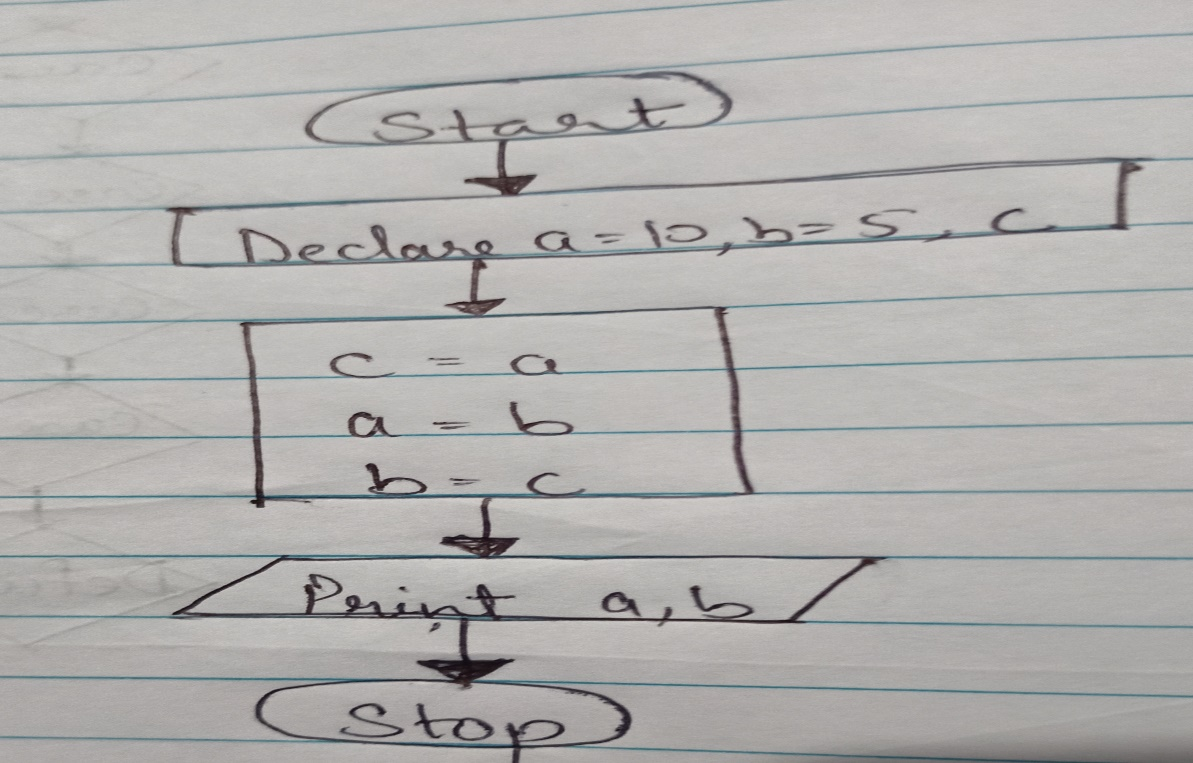 Start
Declare a = 10, b = 5, c
c = a
a = b
b = c
Print a, b
Stop